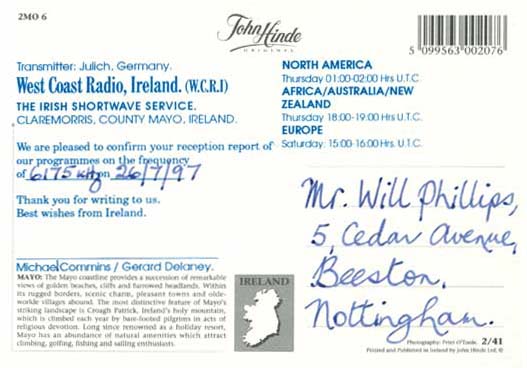 2MO 6
John Hinde
ORIGINAL
5 099563 002076
Transmitter: Julich, Germany.
West Coast Radio, Ireland. (W.C.R.I)
THE IRISH SHORTWAVE SERVICE.
CLAREMORRIS, COUNTY MAYO, IRELAND.
We are pleased to confirm your reception report of
our programmes on the frequency
of 6175 kHz on 26/7/97
Thank you for writing to us.
Best wishes from Ireland.
Michael Commins / Gerard Delaney.
MAYO: The Mayo coastline provides a succession of remarkable
views of golden beaches, cliffs and furrowed headlands. Within
its rugged borders, scenic charm, pleasant towns and olde-
worlde villages abound. The most distinctive feature of Mayo's
striking landscape is Croagh Patrick, Ireland's holy mountain,
which is climbed each year by bare-footed pilgrims in acts of
religious devotion. Long since renowned as a holiday resort,
Mayo has an abundance of natural amenities which attract
climbing, golfing, fishing and sailing enthusiasts.
IRELAND
NORTH AMERICA
Thursday 01:00-02:00 Hrs U.T.C.
AFRICA/AUSTRALIA/NEW
ZEALAND
Thursday 18:00-19:00 Hrs U.T.C.
EUROPE
Saturday: 15:00-16:00 Hrs. U.T.C.
Mr. Will Phillips,
5, Cedar Avenue,
Beeston,
Nottingham.
Photography: Peter O'Toole. 2/41
Printed and Published in Ireland by John Hinde Ltd. ©